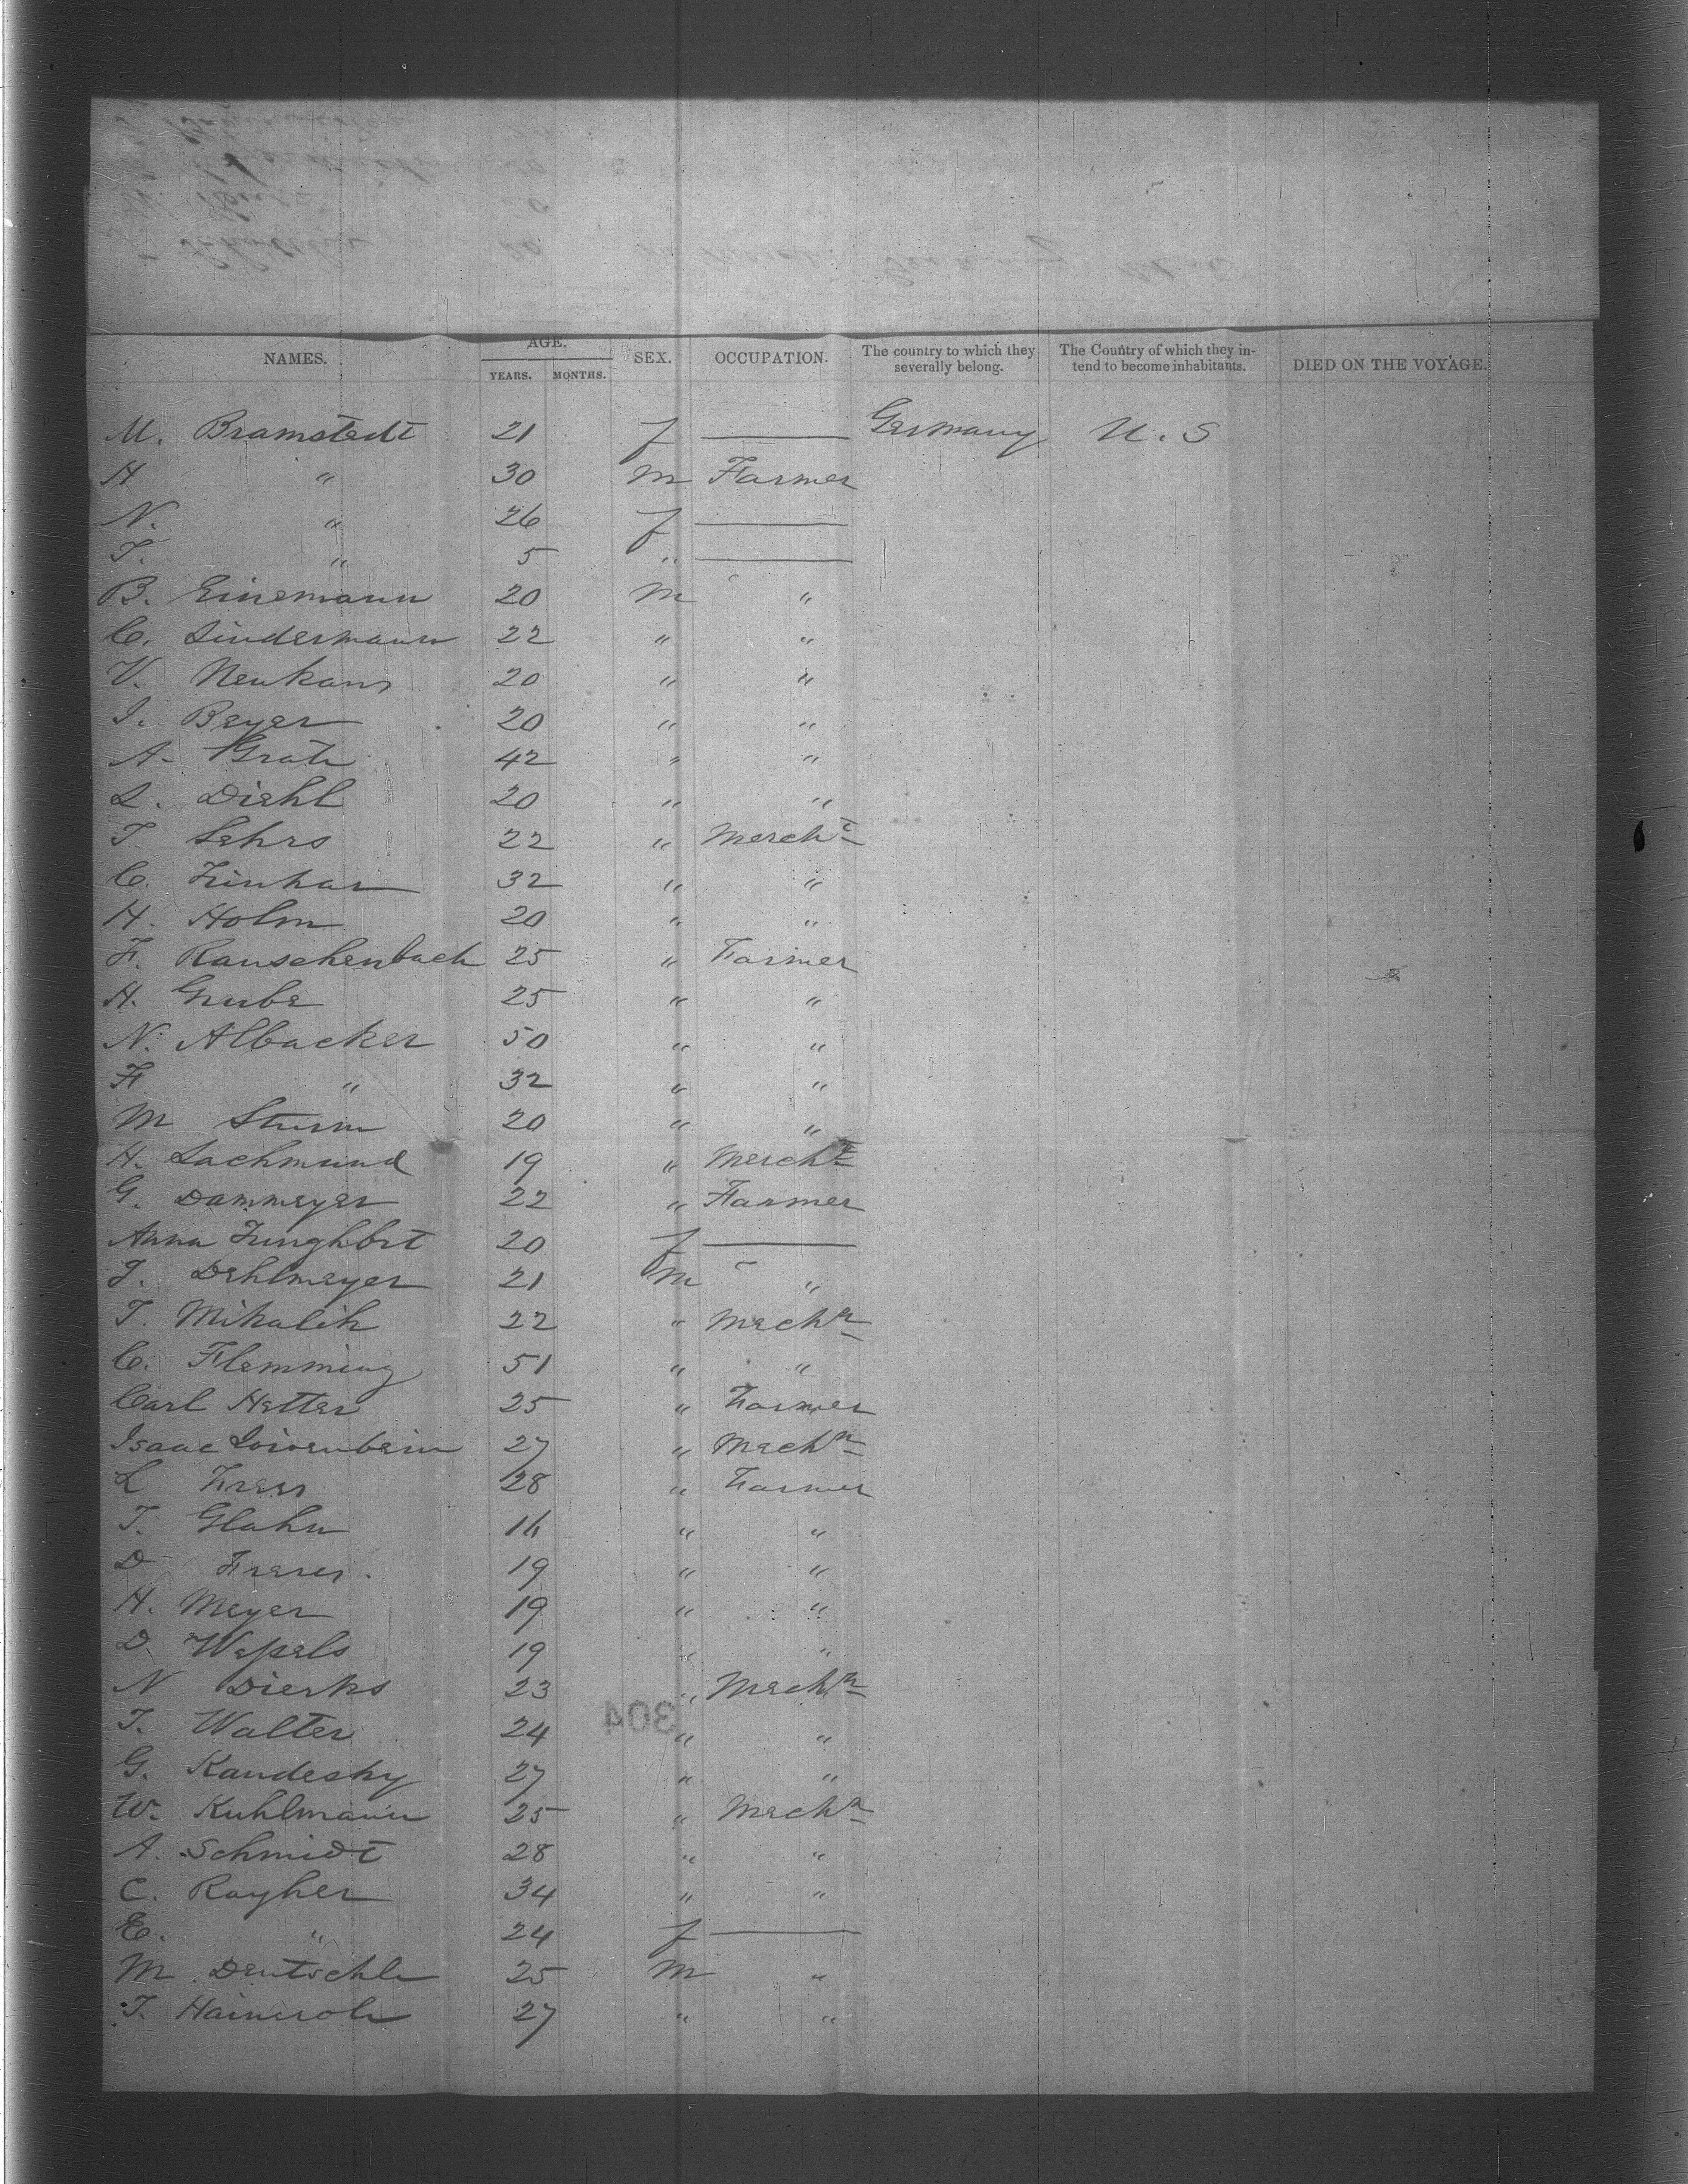 NAMES. AGE. YEARS. MONTHS. SEX. OCCUPATION. The country to which they severally belong. The Country of which they intend to become inhabitants. DIED ON THE VOYAGE.
M. Bramstedt 21 f — Germany U. S
H " 30 m Farmer
N. " 26 f —
T. " 5 " —
B. Einemann 20 m "
C. Lindermann 22 " "
V. Neukans 20 " "
I. Beyer 20 " "
A. 42 " "
L. Diehl 20 " "
T. Lehrs 22 " Mercht
C. 32 " "
H. Holm 20 " "
F. Rauschenbach 25 " Farmer
H. Grube 25 " "
N. Albacker 50 " "
F " 32 " "
M Sturm 20 " "
H. Lachmund 19 " Mercht
G. Dammeyer 22 " Farmer
Anna 20 f —
J. Dehlmeyer 21 m "
T. Mikalik 22 " Mechn
C. Flemming 51 " "
Carl Hetter 25 " Farmer
Isaac 27 " Mechn
L 28 " Farmer
T. Glahn 16 " "
D 19 " "
H. Meyer 19 " "
D. Wessels 19 " "
N Dierks 23 " Mechn
304
T. Walter 24 " "
G. Kandesky 27 " "
W. Kuhlmann 25 " Mechn
A. Schmidt 28 " "
C. Rayher 34 " "
E. " 24 f —
M. Deutschle 25 m "
T. 27 " "